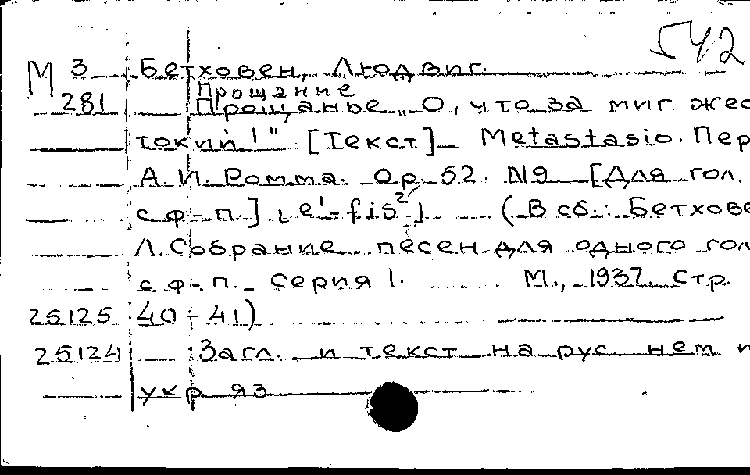 542
М 3 Бетховен, Людвиг.
Прощание
281 Прощанье „О, что за миг жес
токий!" [Текст] Metastasio. Пер
А.И. Ромма. Op. 52. N9 [Для гол.
с ф-п.] ; e'-fis²] (В сб.: Бетхове
Л. Собрание песен для одного гол
с ф-п. Серия I. М., 1937. Стр.
25125 40-41)
25124 Загл. и текст на рус нем и
укр яз